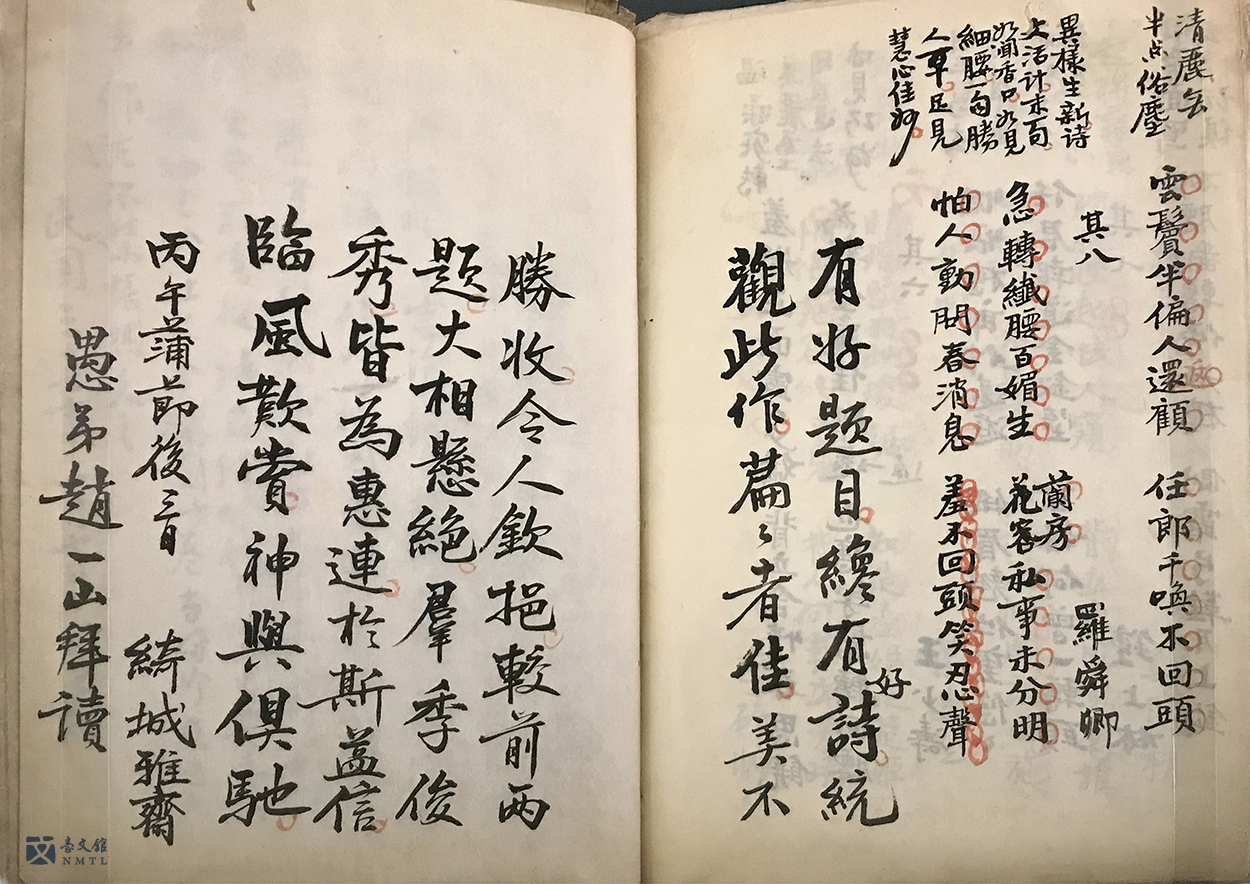 清塵无
半点俗塵
雲鬢半偏人還顧
任郎千喚不回頭
其八
羅舜卿
異樣生新詩
上活計末一句
如聞香口如見
細腰一句勝
人
足見
慧心佳妙
急轉纖腰百媚生
蘭房
花客私事未分明
怕人動問春消息
羞不回頭笑忍聲
有好題目纔有好詩統
觀此作篇〻者佳美不
勝收令人欽挹較前兩
題大相懸絕羣季俊
秀皆為惠連於斯益信
臨風歎賞神與俱馳
丙午蒲節後三日
綺城雅齋
愚弟趙一山拜讀
臺文館
NMTL